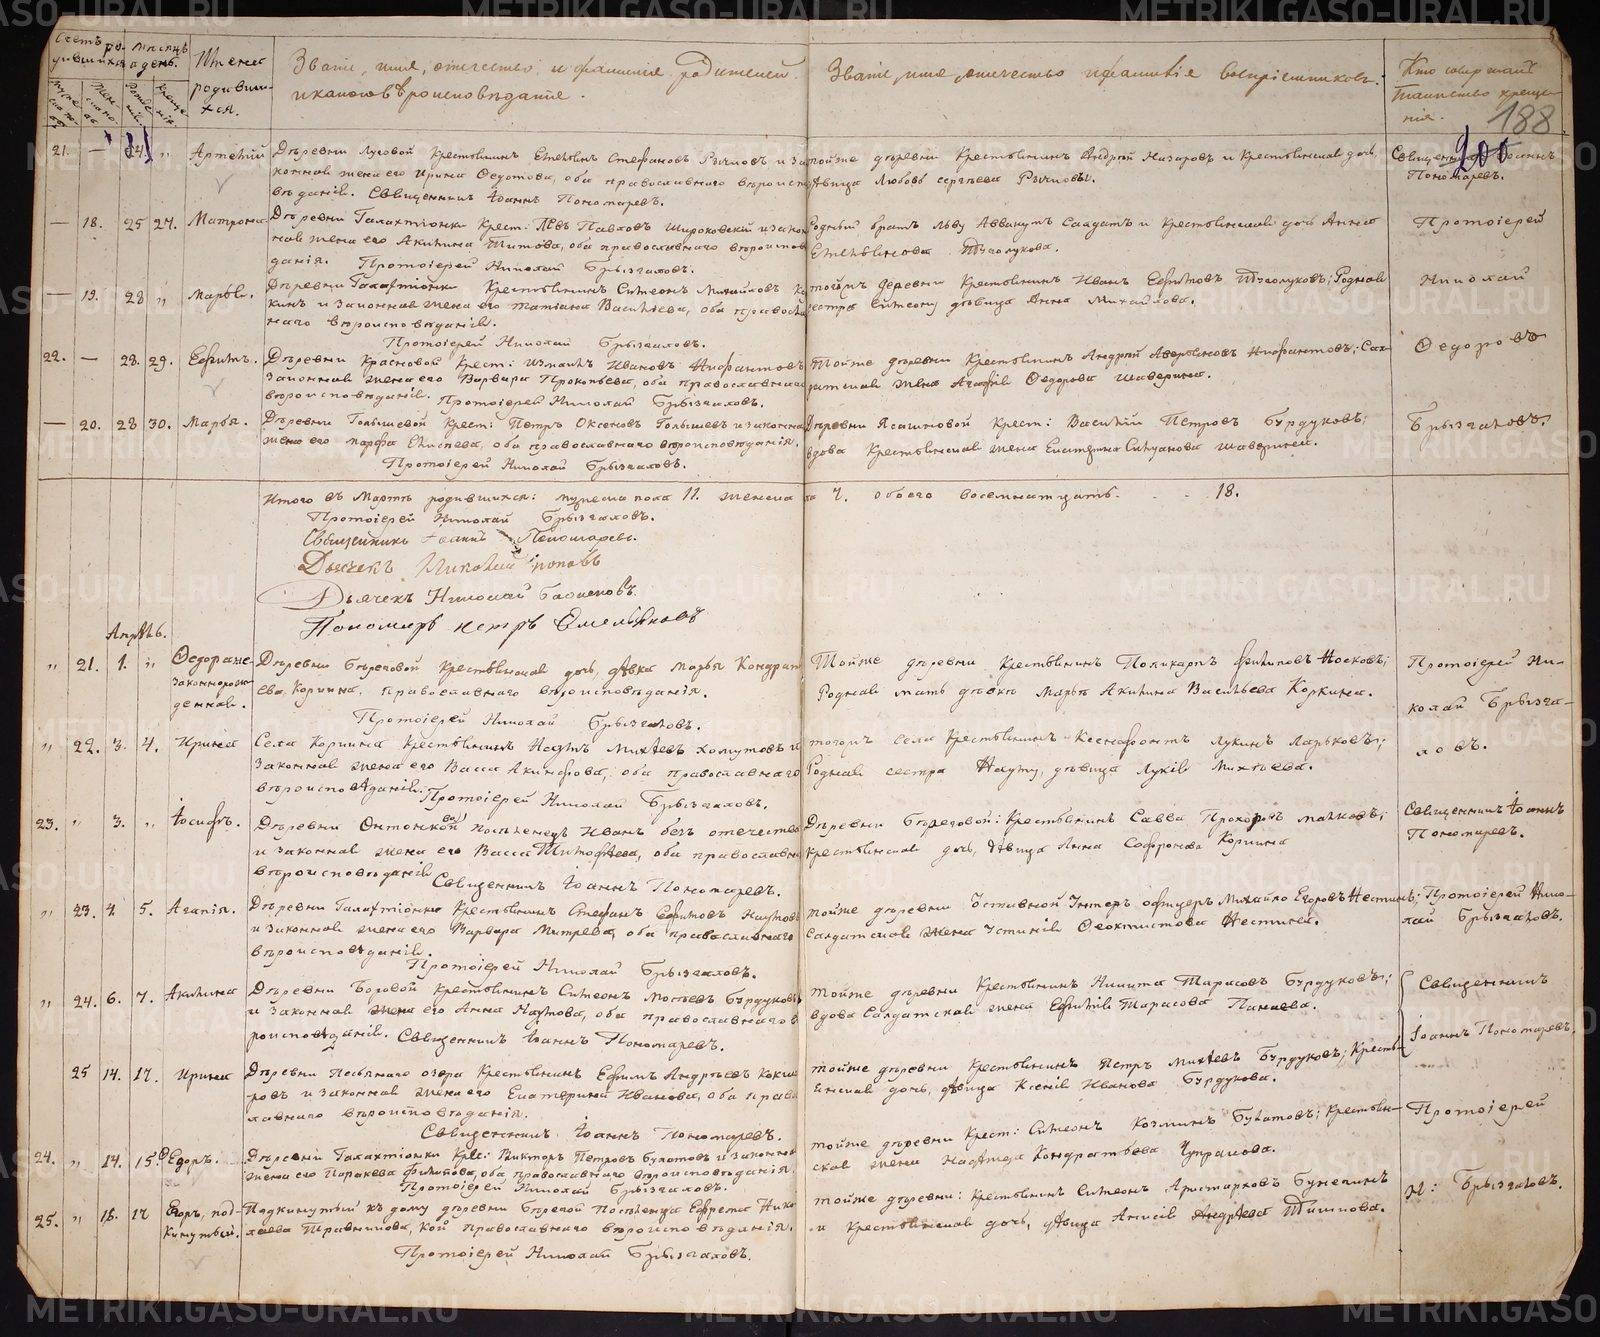 Счетъ ро-
дившихся
Мѣсяцъ
и день.
Имена
родивши-
хся.
Званіе, имя, отечество и фамилія родителей
и какого вѣроисповѣданія.
Званіе, имя, отечество и фамилія воспріемниковъ.
Кто совершалъ
таинство креще-
нія.
188
200
21. — 24. „ Артемій
Деревни Луговой Крестьянинъ Стефановъ и за-
конная жена его Ирина Федотова, оба православнаго вѣроиспо-
вѣданія. Священникъ Іоаннъ Пономаревъ.
тойже деревни Крестьянинъ Андрей Назаровъ и Крестьянская дочь,
дѣвица Любовь Сергѣева
Священникъ Іоаннъ
Пономаревъ.
— 18. 25 27. Матрона
Деревни Галахтіонки Крест: Левъ Павловъ Широковскій и закон-
ная жена его Акилина Титова, оба православнаго вѣроиспов-
данія. Протоіерей Николай Брызгаловъ.
Родный братъ Льву Аввакумъ Солдатъ и Крестьянская дочь Анна
Протоіерей
— 19. 28 „ Марѳа.
Деревни Галахтіонки Крестьянинъ Симеонъ Михайловъ
кинъ и Законная жена его Татіана Васильева, оба православ-
наго вѣроисповѣданія.
Протоіерей Николай Брызгаловъ.
тойже деревни Крестьянинъ Иванъ Ефимовъ Родная
сестра Симеону дѣвица Анна Михайлова.
Николай
22. — 28. 29. Ефимъ.
Деревни Крайновой Крест: Измаилъ Ивановъ Нифантовъ
Законная жена его Варвара Прокопьева, оба православнаго
вѣроисповѣданія. Протоіерей Николай Брызгаловъ.
Тойже деревни Крестьянинъ Андрей Нифантовъ; Сол-
датская жена Агафія Федорова Шаверина.
Ѳедоровъ
— 20. 28 30. Марѳа.
Деревни Голышевой Крест: Петръ Голышевъ и законная
жена его Марѳа Елисеева, оба православнаго вѣроисповѣданія.
Протоіерей Николай Брызгаловъ.
Деревни Ясашновой Крест: Василій Петровъ Бурдуковъ;
вдова Крестьянская жена Екатерина Шаверина.
Брызгаловъ.
Итого въ Мартѣ родившихся: мужеска пола 11. женска
ла 7. обоего восемнатцать. 18.
Протоіерей Николай Брызгаловъ.
Священникъ Іоаннъ Пономаревъ.
Дьячекъ Николай Поповъ
Дьячекъ Николай
Пономарь Петръ Емельяновъ
Апрѣль.
„ 21. 1. „ Ѳедора не-
законнорож-
денная.
Деревни Береговой Крестьянская дочь, дѣвка Марѳа Кондрать-
ева Коркина, православнаго вѣроисповѣданія.
Протоіерей Николай Брызгаловъ.
Тойже деревни Крестьянинъ Поликарпъ Филиповъ Носковъ;
Родная мать дѣвки Марѳы Акилина Васильева Коркина.
Протоіерей Ни-
колай Брызга-
„ 22. 3. 4. Ирина
Села Коркина Крестьянинъ Наумъ Михѣевъ Хомутовъ и
Законная жена его Васса Акинфова, оба православнаго
вѣроисповѣданія. Протоіерей Николай Брызгаловъ.
тогожъ села Крестьянинъ Ксенофонтъ Лукинъ Ларьковъ;
Родная сестра Науму, дѣвица Лукія Михѣева.
ловъ.
23. „ 3. „ Іосифъ.
Деревни Антонковой Посѣленецъ Иванъ безъ отечества
и Законная жена его Васса Тимофѣева, оба православна
вѣроисповѣданія Священникъ Іоаннъ Пономаревъ.
Деревни Береговой: Крестьянинъ Савва Прохоровъ Малковъ;
крестьянская дочь, дѣвица Анна Софронова Коркина
Священникъ Іоаннъ
Пономаревъ.
„ 23. 4. 5. Агапія.
Деревни Галахтіонки Крестьянинъ Стефанъ Ефимовъ Наумовъ
и Законная жена его Варвара Митрева, оба православнаго
вѣроисповѣданія.
Протоіерей Николай Брызгаловъ.
тойже деревни Отставной Унтеръ офицеръ Михайло Егоровъ
Солдатская жена Устинія Феоктистова
Протоіерей Нико-
лай Брызгаловъ.
„ 24. 6. 7. Акилина
Деревни Боровой Крестьянинъ Симеонъ Моѵсеевъ Бурдуковъ
и Законная жена его Анна Наумова, оба православнаго вѣ-
роисповѣданія. Священникъ Іоаннъ Пономаревъ.
тойже деревни Крестьянинъ Никита Тарасовъ Бурдуковъ;
вдова Солдатская жена Ефимія Тарасова Панаева.
Священникъ
Іоаннъ Пономаревъ.
25 14. 17. Ирина
Деревни Песьянаго озера Крестьянинъ Ефимъ Андрѣевъ
ровъ и законная жена его Екатерина Иванова, оба право-
славнаго вѣроисповѣданія.
Священникъ Іоаннъ Пономаревъ.
тойже деревни Крестьянинъ Петръ Михѣевъ Бурдуковъ; Кресть-
янская дочь, дѣвица Ксенія Иванова Бурдукова.
24. „ 14. 15. Егоръ.
Деревни Галахтіонки Крес: Викторъ Петровъ Булатовъ и законная
жена его Параскева Филипова, оба православнаго вѣроисповѣданія.
Протоіерей Николай Брызгаловъ.
тойже деревни Крест: Симеонъ Козминъ Булатовъ; Крестьян-
ская жена Надежда Кондратьева Чупракова.
Протоіерей
25. „ 16. 17 Егоръ, под-
кинутый.
Подкинутый къ дому деревни Береговой Посѣленца Ефрема Нико-
лаева Травникова, кой православнаго вѣроисповѣданія.
Протоіерей Николай Брызгаловъ.
тойже деревни: крестьянинъ Симеонъ Аристарховъ
и Крестьянская дочь, дѣвица Анисія Андрѣева
Н: Брызгаловъ.
METRIKI.GASO-URAL.RU